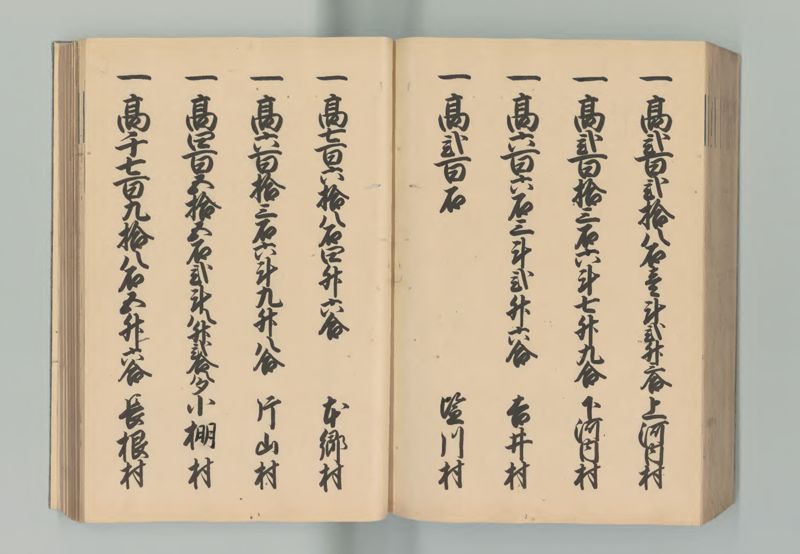 一 高弐百弐拾八石壱斗弐升六合 上河内村
一 高弐百拾三石六斗七升九合 下河内村
一 高六百六石三斗弐升六合 吉井村
一 高弐百石 塩川村
一 高七百六拾八石四升六合 本郷村
一 高六百拾三石六斗九升八合 片山村
一 高四百五拾五石弐斗八升 小棚村
一 高千七百九拾八石五升六合 長根村